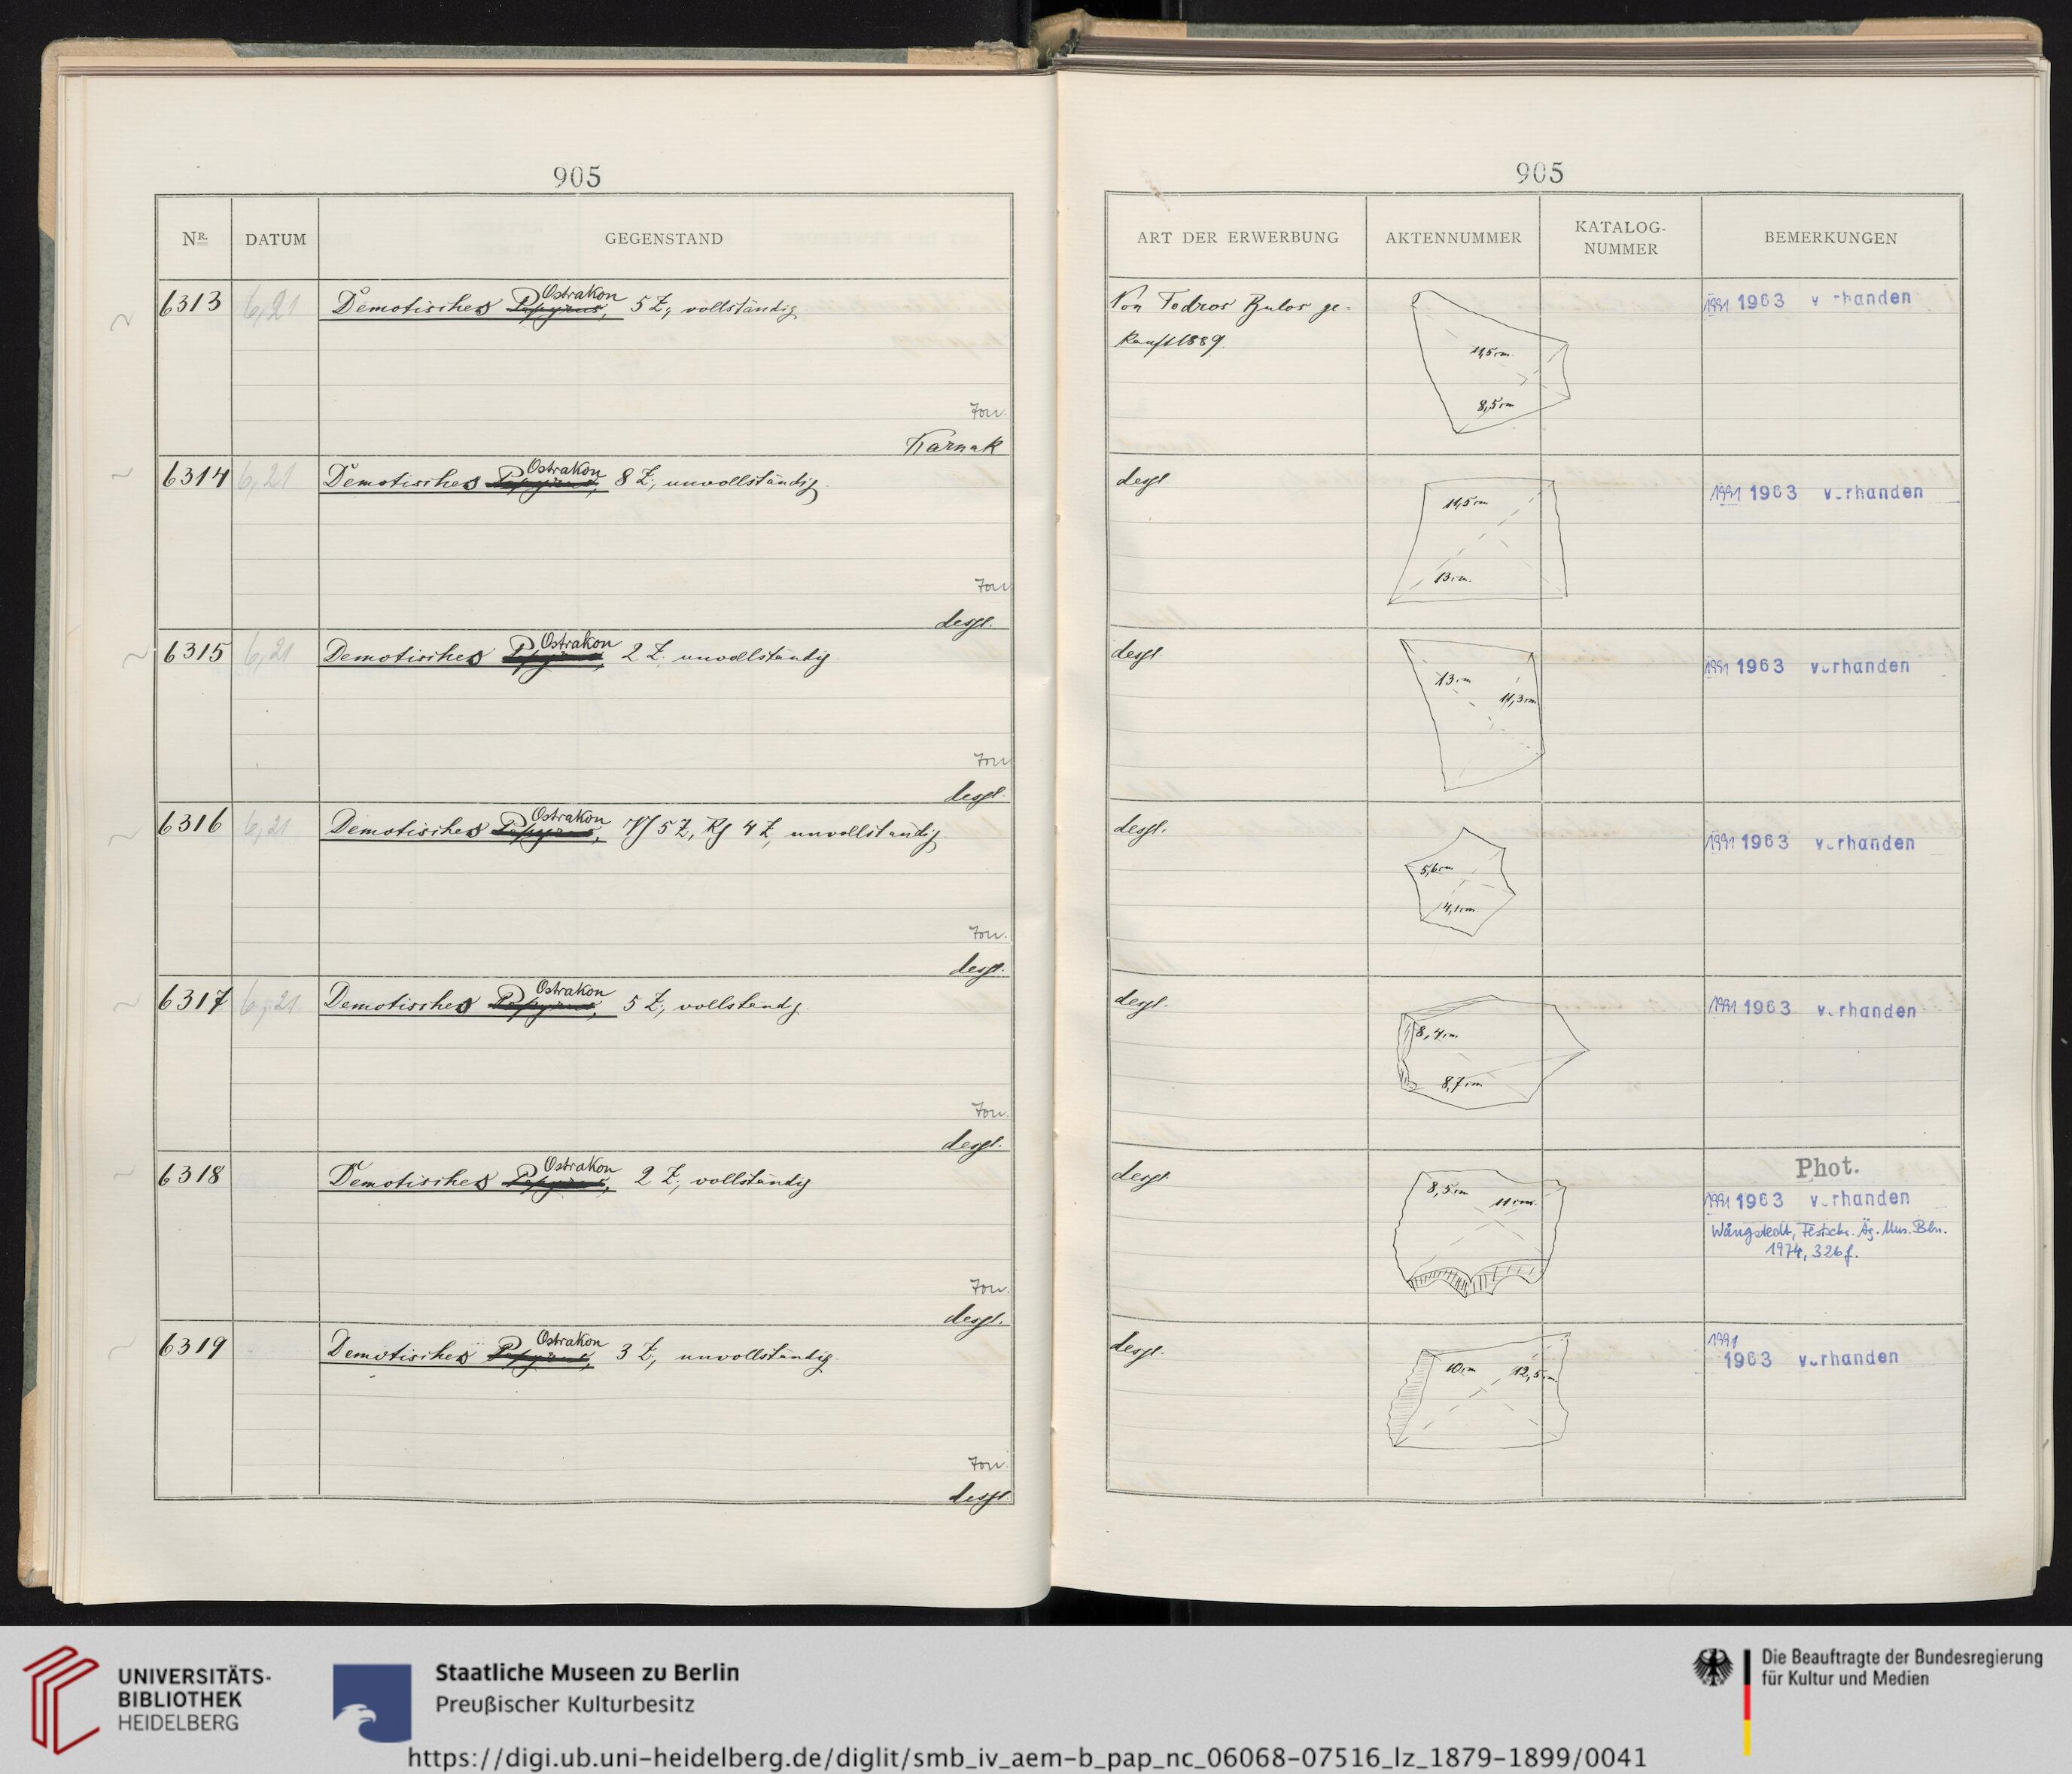 905
Nr. DATUM GEGENSTAND
6313 6,21 Demotisches Papyrus, Ostrakon 5 Z., vollständig
Ton.
Karnak
6314 6,21 Demotisches Papyrus, Ostrakon 8 Z., unvollständig.
Ton
desgl.
6315 6,21 Demotisches Papyrus, Ostrakon 2 Z. unvollständig.
Ton
desgl.
6316 6,21 Demotisches Papyrus, Ostrakon Vs 5 Z, Rs 4 Z, unvollständig
Ton.
desgl.
6317 6,21 Demotisches Papyrus, Ostrakon 5 Z., vollständig.
Ton.
desgl.
6318 Demotisches Papyrus, Ostrakon 2 Z., vollständig
Ton.
desgl.
6319 Demotisches Papyrus, Ostrakon 3 Z., unvollständig.
Ton.
desgl.
905
ART DER ERWERBUNG AKTENNUMMER KATALOG-NUMMER BEMERKUNGEN
Von Todros Bulos ge-
kauft 1889.
11,5 cm
8,5 cm
1991 1963 vorhanden
desgl.
11,5 cm
13 cm.
1991 1963 vorhanden
desgl.
13 cm
11,3 cm
1991 1963 vorhanden
desgl.
5,6 cm
4,1 cm.
1991 1963 vorhanden
desgl.
8,4 cm.
8,7 cm
1991 1963 vorhanden
desgl.
8,5 cm 11 cm.
Phot.
1991 1963 vorhanden
Wångstedt, Festschr. Äg. Mus. Bln.
1974, 326 f.
desgl.
10 cm 12,5 cm.
1991
1963 vorhanden
UNIVERSITÄTS-
BIBLIOTHEK
HEIDELBERG
Staatliche Museen zu Berlin
Preußischer Kulturbesitz
Die Beauftragte der Bundesregierung
für Kultur und Medien
https://digi.ub.uni-heidelberg.de/diglit/smb_iv_aem-b_pap_nc_06068-07516_lz_1879-1899/0041